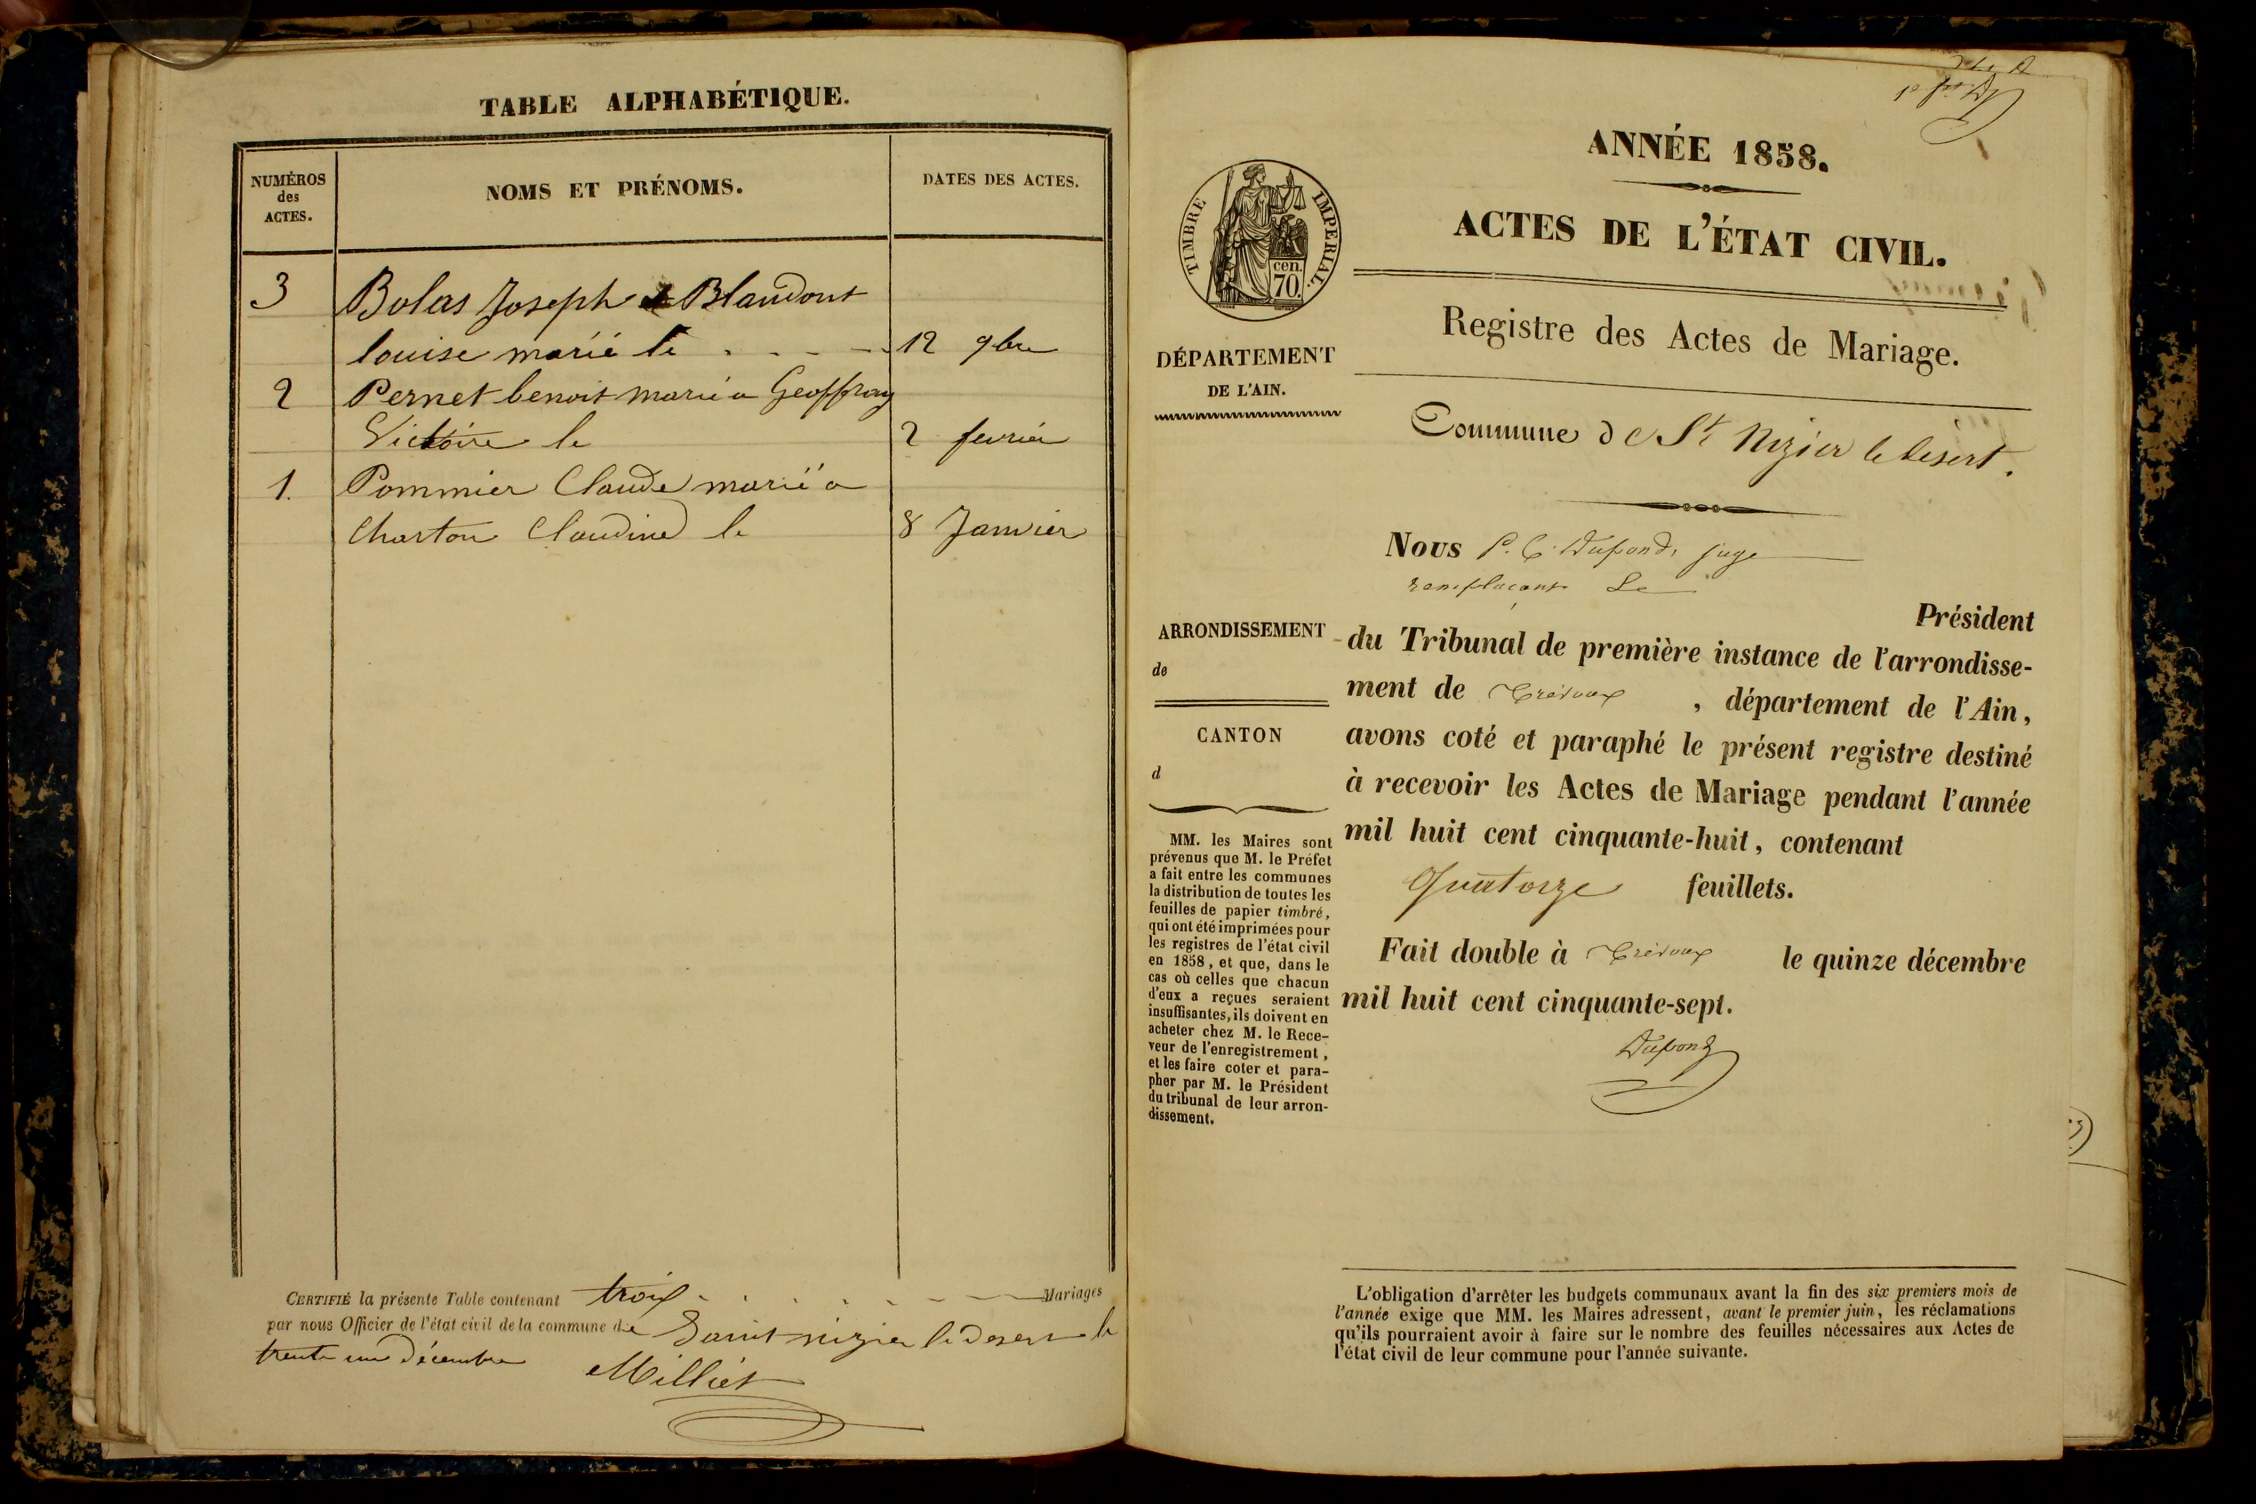 TABLE ALPHABÉTIQUE.
NUMÉROS
des
ACTES.
NOMS ET PRÉNOMS.
DATES DES ACTES.
3 Bolas Joseph & Blandont
louise marié le . . - - 12 9bre
2 Pernet benoit marié a Geoffray
Victoire le 2 fevrier
1. Pommier Claude marié a
Charton Claudine le 8 Janvier
CERTIFIÉ la présente Table contenant trois Mariages
par nous Officier de l'état civil de la commune de Saint nizier le desert le
trente un Décembre
Milliet
ANNÉE 1858.
ACTES DE L'ÉTAT CIVIL.
TIMBRE IMPERIAL.
cen.
70.
Registre des Actes de Mariage.
DÉPARTEMENT
DE L'AIN.
Commune de St Nizier le desert.
Nous P. C. Dupond, juge
remplaçant Le
Président
du Tribunal de première instance de l'arrondisse-
ment de Trévoux , département de l'Ain,
avons coté et paraphé le présent registre destiné
à recevoir les Actes de Mariage pendant l'année
mil huit cent cinquante-huit, contenant
Quatorze feuillets.
Fait double à Trévoux le quinze décembre
mil huit cent cinquante-sept.
Dupond
ARRONDISSEMENT
de
CANTON
d
MM. les Maires sont
prévenus que M. le Préfet
a fait entre les communes
la distribution de toutes les
feuilles de papier timbré,
qui ont été imprimées pour
les registres de l'état civil
en 1858, et que, dans le
cas où celles que chacun
d'eux a reçues seraient
insuffisantes, ils doivent en
acheter chez M. le Rece-
veur de l'enregistrement,
et les faire coter et para-
pher par M. le Président
du tribunal de leur arron-
dissement.
L'obligation d'arrêter les budgets communaux avant la fin des six premiers mois de
l'année exige que MM. les Maires adressent, avant le premier juin, les réclamations
qu'ils pourraient avoir à faire sur le nombre des feuilles nécessaires aux Actes de
l'état civil de leur commune pour l'année suivante.